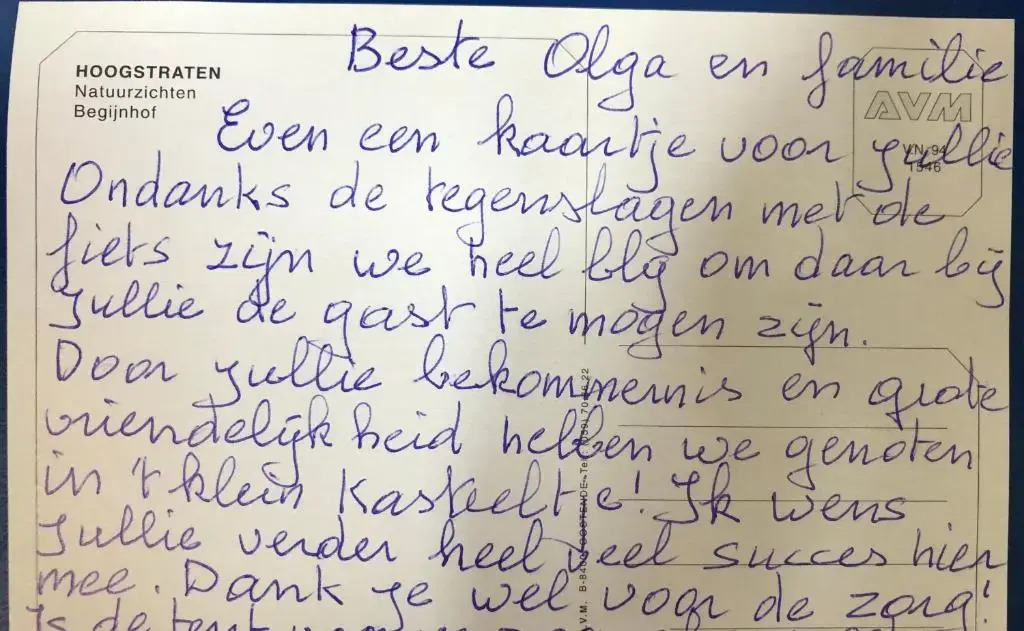 HOOGSTRATEN
Natuurzichten
Begijnhof
AVM
V.N. 94
1546
Beste Olga en familie
Even een kaartje voor jullie
Ondanks de tegenslagen met de
fiets zijn we heel blij om daar bij
jullie de gast te mogen zijn.
Door jullie bekommernis en grote
vriendelijkheid hebben we genoten
in 't klein kasteeltje! Ik wens
jullie verder heel veel succes hier
mee. Dank je wel voor de zorg!
Is de tent